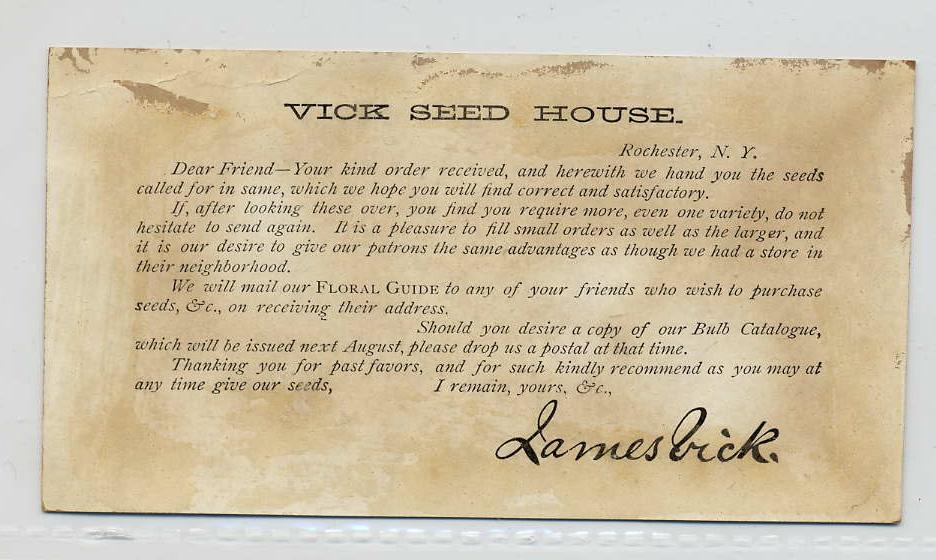 VICK SEED HOUSE.
Rochester, N. Y.
Dear Friend—Your kind order received, and herewith we hand you the seeds
called for in same, which we hope you will find correct and satisfactory.
If, after looking these over, you find you require more, even one variety, do not
hesitate to send again. It is a pleasure to fill small orders as well as the larger, and
it is our desire to give our patrons the same advantages as though we had a store in
their neighborhood.
We will mail our FLORAL GUIDE to any of your friends who wish to purchase
seeds, &c., on receiving their address.
Should you desire a copy of our Bulb Catalogue,
which will be issued next August, please drop us a postal at that time.
Thanking you for past favors, and for such kindly recommend as you may at
any time give our seeds, I remain, yours, &c.,
James Vick.